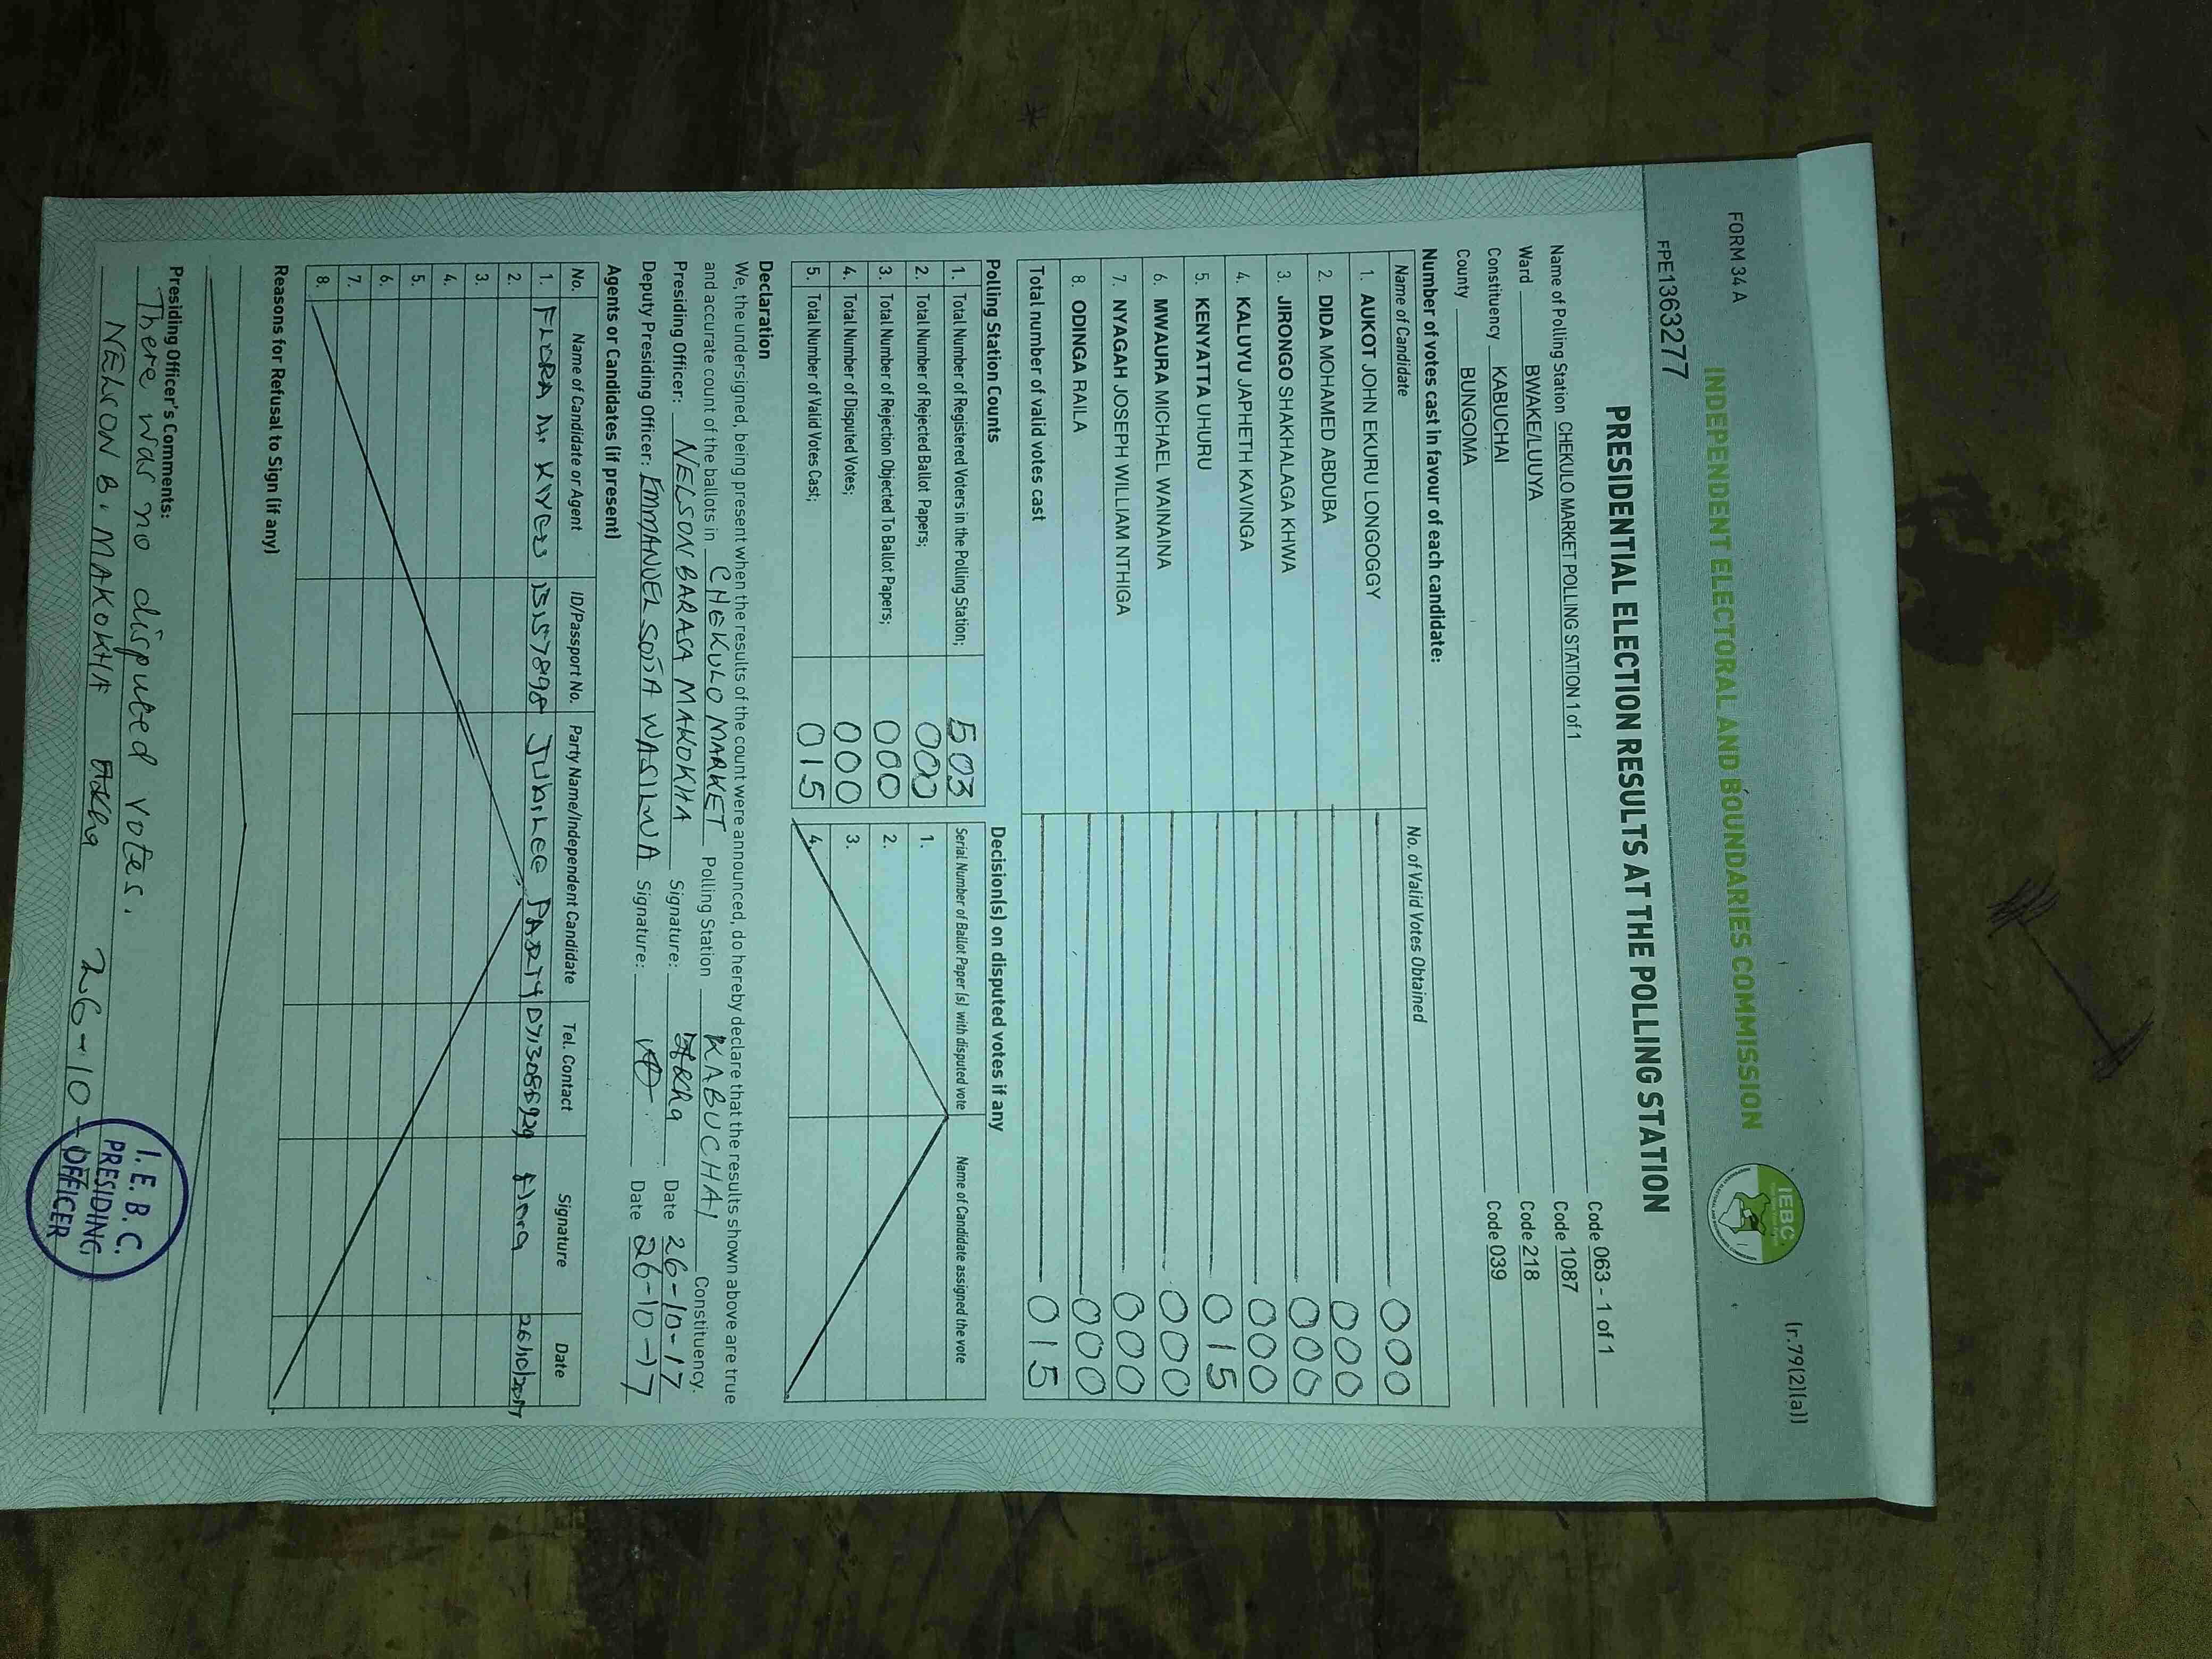 FORM 34 A
(r.79(2)(a))
INDEPENDENT ELECTORAL AND BOUNDARIES COMMISSION
IEBC
FPE1363277
PRESIDENTIAL ELECTION RESULTS AT THE POLLING STATION
Name of Polling Station CHEKULO MARKET POLLING STATION 1 of 1 Code 063 - 1 of 1
Ward BWAKE/LUUYA Code 1087
Constituency KABUCHAI Code 218
County BUNGOMA Code 039
Number of votes cast in favour of each candidate:
Name of Candidate No. of Valid Votes Obtained
1. AUKOT JOHN EKURU LONGOGGY 000
2. DIDA MOHAMED ABDUBA 000
3. JIRONGO SHAKHALAGA KHWA 000
4. KALUYU JAPHETH KAVINGA 000
5. KENYATTA UHURU 015
6. MWAURA MICHAEL WAINAINA 000
7. NYAGAH JOSEPH WILLIAM NTHIGA 000
8. ODINGA RAILA 000
Total number of valid votes cast 015
Polling Station Counts
1. Total Number of Registered Voters in the Polling Station; 503
2. Total Number of Rejected Ballot Papers; 000
3. Total Number of Rejection Objected To Ballot Papers; 000
4. Total Number of Disputed Votes; 000
5. Total Number of Valid Votes Cast; 015
Decision(s) on disputed votes if any
Serial Number of Ballot Paper (s) with disputed vote Name of Candidate assigned the vote
1.
2.
3.
4.
Declaration
We, the undersigned, being present when the results of the count were announced, do hereby declare that the results shown above are true
and accurate count of the ballots in CHEKULO MARKET Polling Station KABUCHAI Constituency.
Presiding Officer: NELSON BARASA MAKOKHA Signature: Date 26-10-17
Deputy Presiding Officer: EMMANUEL WASILWA Signature: Date 26-10-17
Agents or Candidates (if present)
No. Name of Candidate or Agent ID/Passport No. Party Name/Independent Candidate Tel. Contact Signature Date
1. FLORA N. JUBILEE PARTY Flora 26/10/2017
2.
3.
4.
5.
6.
7.
8.
Reasons for Refusal to Sign (if any)
Presiding Officer's Comments:
There was no disputed votes.
NELSON B. MAKOKHA 26-10-
I. E. B. C.
PRESIDING
OFFICER